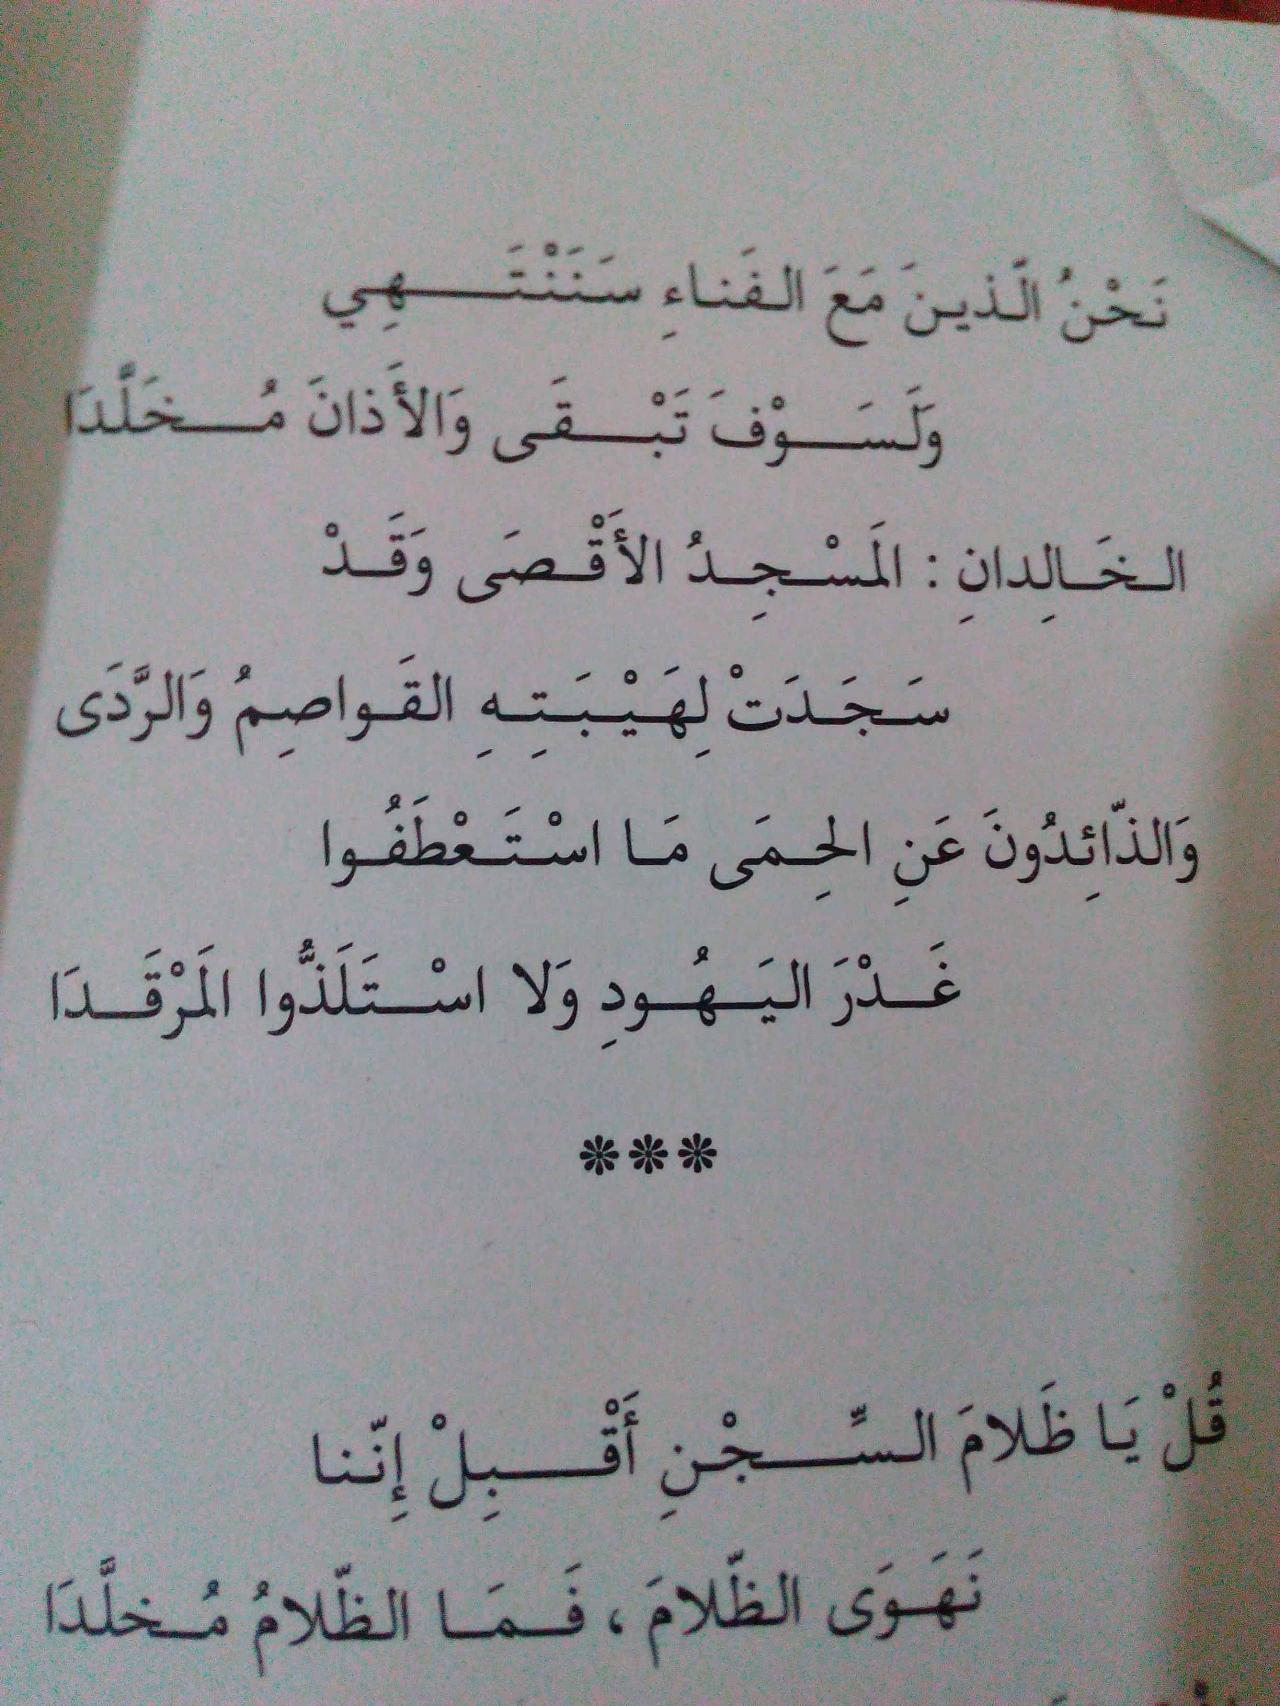 نَحْنُ الَّذينَ مَعَ الفَناءِ سَنَنْتَهِي
وَلَسَوْفَ تَبْقَى وَالأَذانَ مُخَلَّدَا
الخَالِدانِ : المَسْجِدُ الأَقْصَى وَقَدْ
سَجَدَتْ لِهَيْبَتِهِ القَواصِمُ وَالرَّدَى
وَالذّائِدُونَ عَنِ الحِمَى مَا اسْتَعْطَفُوا
غَدْرَ اليَهُودِ وَلا اسْتَلَذُّوا المَرْقَدَا
***
قُلْ يَا ظَلامَ السِّجْنِ أَقْبِلْ إِنّنا
نَهَوَى الظّلامَ ، فَمَا الظّلامُ مُخلَّدَا